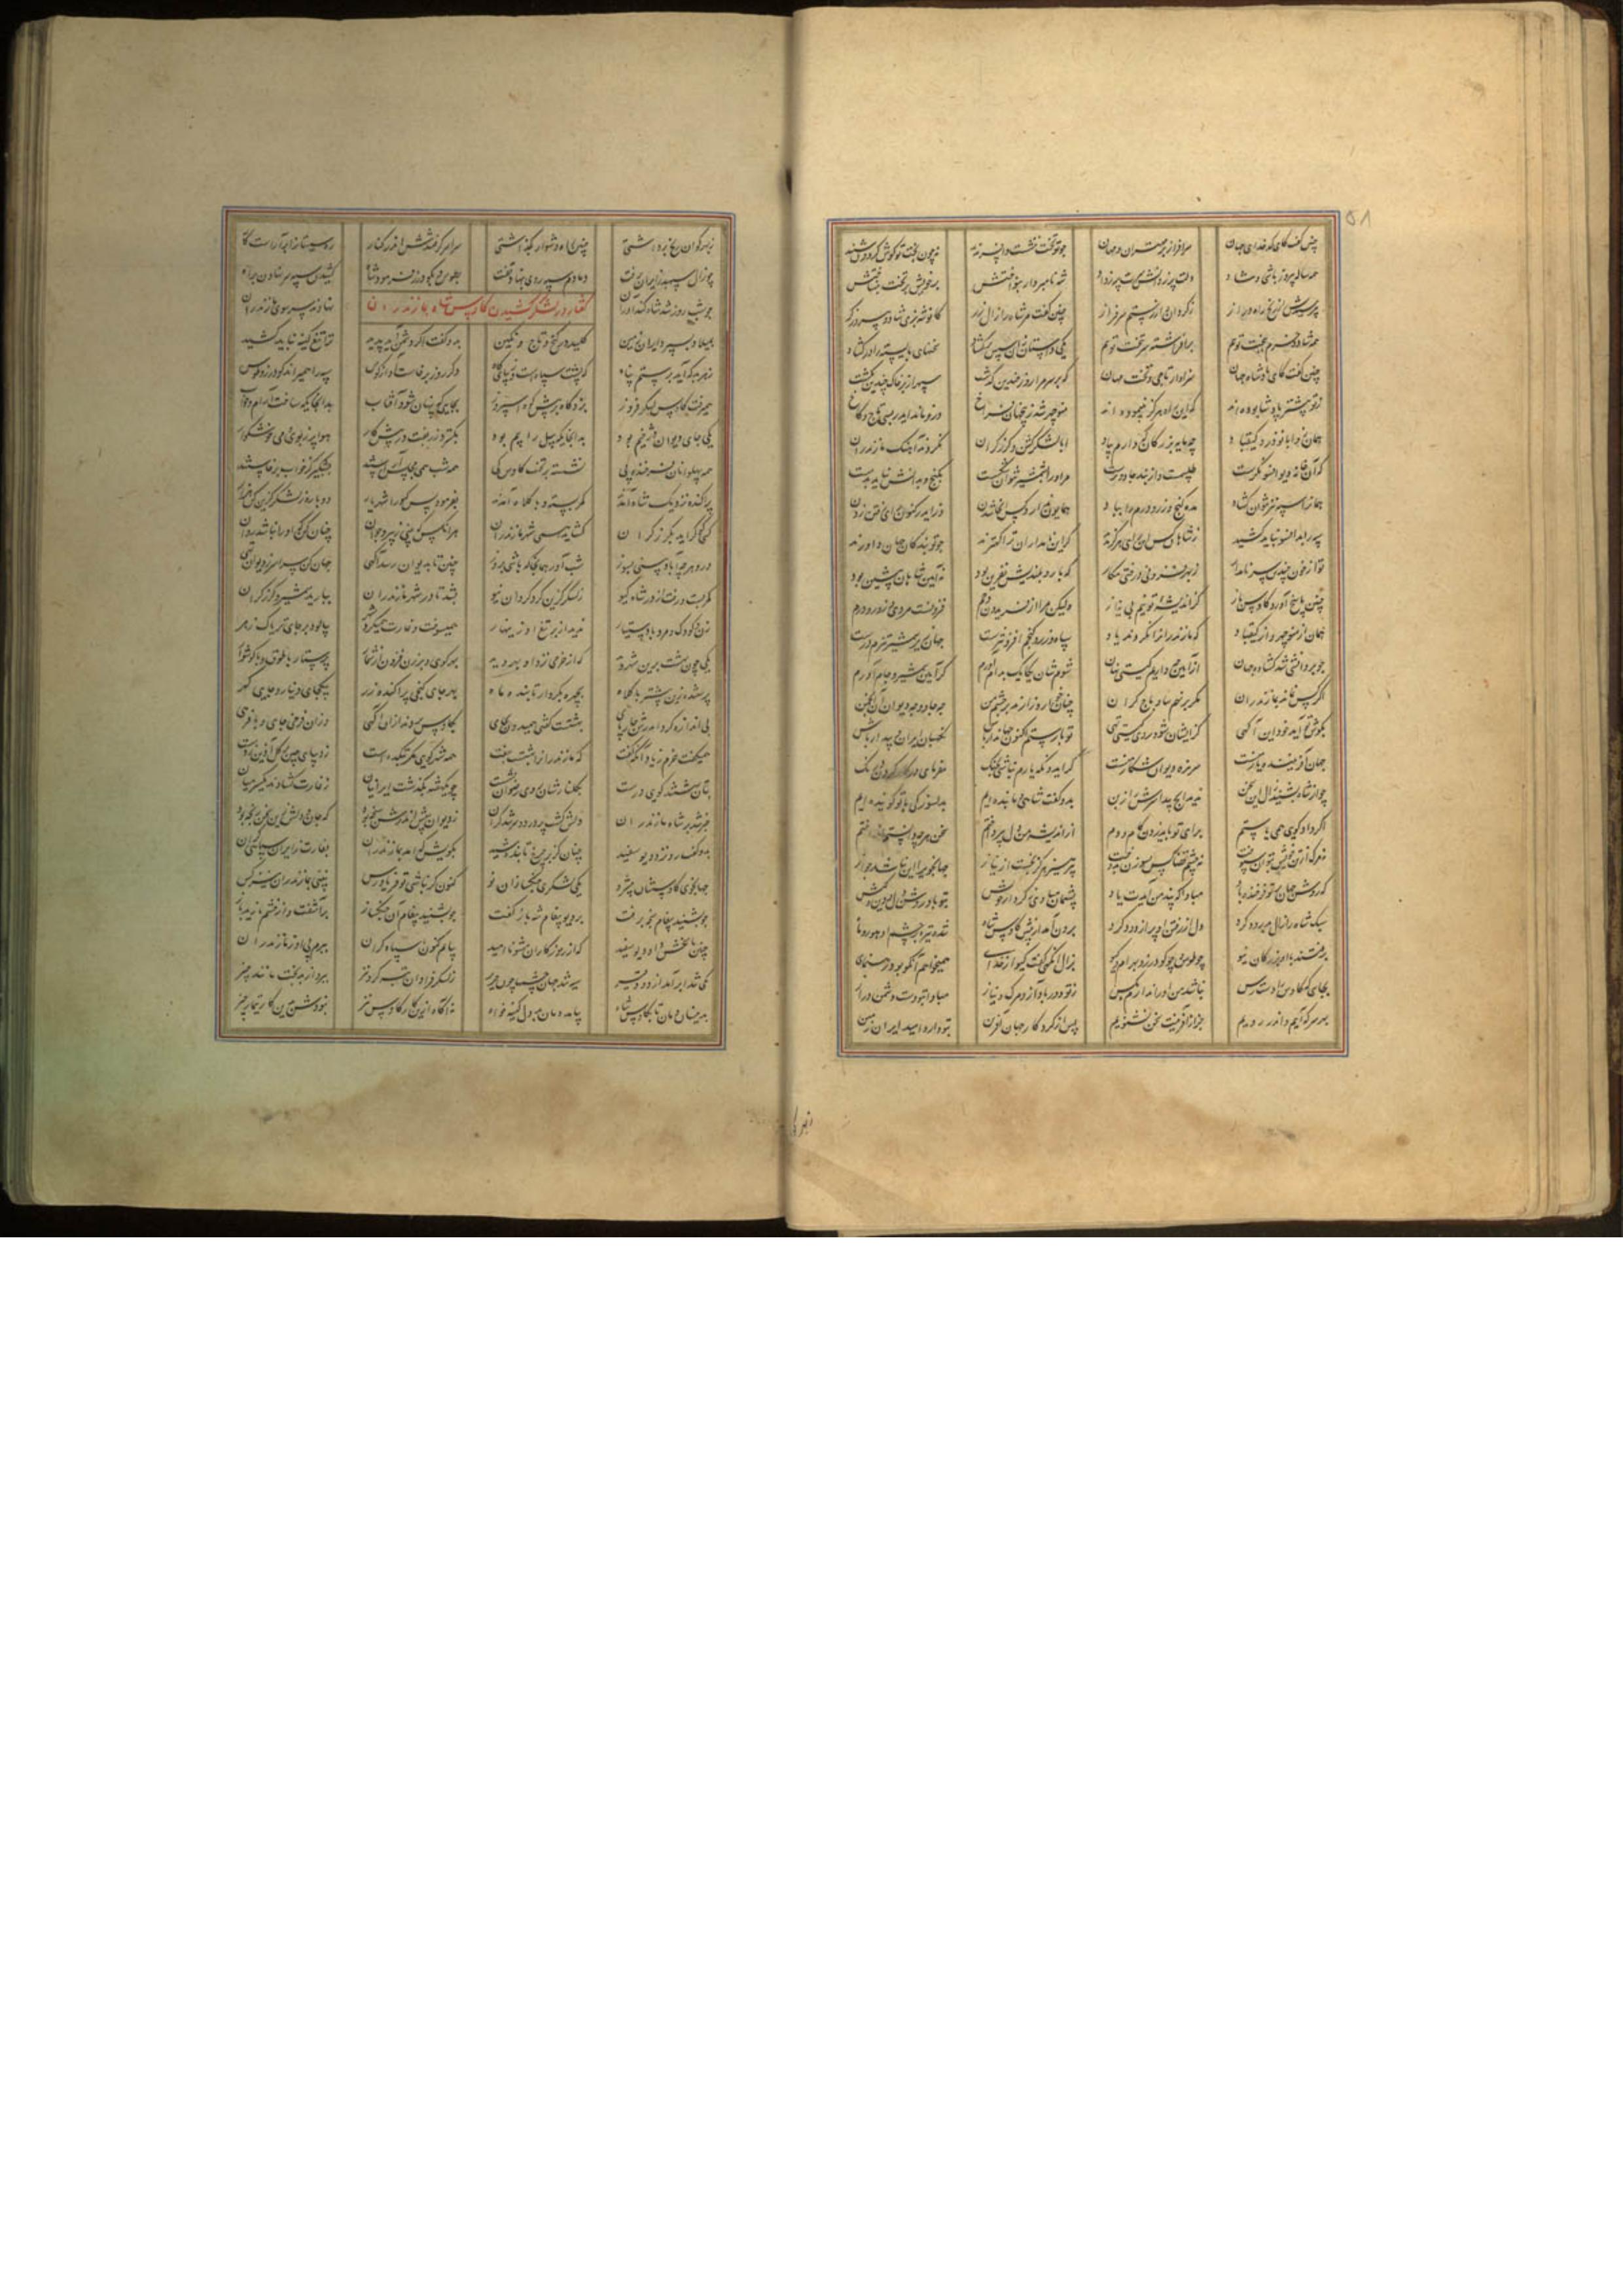 چنین گفت کای کدخدای جهان سرافراز بر مهتران و مهان چو تو تخت نشنید و افسر ندید نه چون بخت تو گوش گردون شنید
همه ساله پیروز باشی و شاد دلت پر ز دانش سرت پر ز داد شه نامبردار بنواختش بر خویش بر تخت بنشاختش
بپرسیدش از رنج راه دراز ز گردان و از رستم سرفراز چنین گفت مر شاه را زال زر کانوشه بزی شاد و پیروزگر
همه شاد و خرم ببخت تویم برافراشته سر بتخت تویم یکی داستان زان سپس برگشاد سخنهای بایسته را در گشاد
چنین گفت کای پادشاه جهان سزاوار تاجی و تخت مهان که بر سر مرا روز چندین گذشت سپهر از بر خاک چندین بگشت
ز تو پیشتر پادشا بوده اند که این راه هرگز نپیموده اند منوچهر شد زین جهان فراخ وزو ماند ایدر بسی تاج و کاخ
همان زو ابا نوذر و کیقباد چه مایه بزرگان که داریم یاد ابا لشکر گشن و گرز گران نکردند آهنگ مازندران
که آن خانه دیو افسونگرست طلسمست و از بند جادو درست مر او را بشمشیر نتوان شکست بگنج و بدانش نیاید بدست
هم آنرا به نیرنگ نتوان گشاد مده گنج و زور و درم را بباد همایون ندارد کس آنجا شدن وز ایدر کنون رای رفتن زدن
سپه را بدانسو نباید کشید ز شاهان کس این رای هرگز ندید گر این نامداران ترا کهترند چو تو بندگان جهان داورند
تو از خون چندین سر نامدار ز بهر فزونی درختی مکار که بار و بلندیش نفرین بود نه آیین شاهان پیشین بود
چنین پاسخ آورد کاوس باز کز اندیشه تو نیم بی نیاز ولیکن مرا از فریدون و جم فزونست مردی و زور و درم
همان از منوچهر و از کیقباد که مازندران را نکردند یاد سپاه و زر و گنجم افزونترست جهان زیر شمشیر تیزم درست
چو بردانشی شد گشاده جهان از آهن چه داریم گیتی نهان شوم شان یکایک بدام آورم گر آیین شمشیر و جام آورم
اگر کس نماند بمازندران وگر برنهم ساو و باج گران چنان خوار و زارند بر چشم من چه جادو چه دیوان آن انجمن
بگوش تو آید خود این آگهی کزیشان شود روی گیتی تهی تو با رستم اکنون جهاندار باش نگهبان ایران و بیدار باش
جهان آفریننده یار منست سر نره دیوان شکار منست گر ایدونکه یارم نباشی بجنگ مفرمای در کار کردن درنگ
چو از شاه بشنید زال این سخن ندید ایچ پیدا سرش را ز بن بدو گفت شاهی و ما بنده ایم بدلسوزگی با تو گوینده ایم
اگر داد گویی همی یا ستم برای تو باید زدن گام و دم از اندیشه من دل بپرداختم سخن هرچه دانستم انداختم
نه مرگ از تن خویش بتوان سپوخت نه چشم قضا کس بسوزن بدوخت بپرهیز هرگز نجست از نیاز جهانجوی از این نیابد جواز
که روشن جهان بر تو فرخنده باد مبادا که پند من آیدت یاد پشیمان مبادی ز کردار خویش بتو باد روشن دل و دین و کیش
سبک شاه را زال بدرود کرد دل از رفتن او پر از دود کرد برون آمد از پیش کاوس شاه شده تیره بر چشم او هور و ماه
برفتند با او بزرگان نیو چو طوس و چو گودرز و بهرام گیو بزال آنگهی گفت گیو از خدای همیخواهم آنکو بود رهنمای
بجای که کاوس را دست رس نباشد من او را ندارم بکس ز تو دور باد آز و مرگ و نیاز مبادا بتو دست دشمن دراز
بهر سو که آییم و اندر رویم جز از آفرینت سخن نشنویم پس از کردگار جهان آفرین بتو دارد امید ایران زمین
ز بهر گوان رنج برداشتی چنین راه دشوار بگذاشتی سراسر گرفتندش اندر کنار ره سیستان را برآراست کار
چو زال سپهبد ز ایران برفت دمادم سپه روی بنهاد و تفت بطوس و بگودرز فرمود شاه کشیدن سپه سر نهادن براه
گفتار در لشکر کشیدن کاوس شاه بمازندران
چو شب روز شد شاه و کنداوران نهادند سر سوی مازندران
بمیلاد بسپرد ایران زمین کلید در گنج و تاج و نگین بدو گفت اگر دشمن آید پدید ترا تیغ کینه بباید کشید
ز هر بد که آید برستم پناه که پشت سپاهست و زیبای گاه دگر روز برخاست آوای کوس سپه را همیراند گودرز و طوس
همیرفت کاوس لشکر فروز بزد گاه بر پیش کوه اسپروز بجایی که پنهان شود آفتاب بدانجایگه ساخت آرام و خواب
یکی جای دیوان دژخیم بود بدانجایگه پیل را بیم بود بگسترد زربفت در پیش کار هوا پر ز بوی می خوشگوار
همه پهلوانان فرخنده پی نشستند بر تخت کاوس کی همه شب همی مجلس آراستند بشبگیر کز خواب برخاستند
پراکنده نزدیک شاه آمدند کمر بسته و با کلاه آمدند بفرمود پس گیو را شهریار دو باره ز لشکر گزین کن هزار
کسی کو گراید بگرز گران گشاینده شهر مازندران هر آنکس که بینی ز پیر و جوان چنان کن که او را نباشد روان
درو هرچه آباد بینی بسوز شب آور هر آنجا که باشی بروز چنین تا بدیوان رسد آگهی جهان کن سراسر ز دیوان تهی
کمر بست و رفت از در شاه گیو ز لشکر گزین کرد گردان نیو بشد تا در شهر مازندران ببارید شمشیر و گرز گران
زن و کودک و مرد با دستیار ندید از بر تیغ او زینهار همیسوخت و غارت همیکرد شهر بپالود بر جای تریاک زهر
یکی چون بهشت برین شهر دید که از خرمی نزد او بهره دید بهر کوی و برزن فزون از شمار پرستار با طوق و با گوشوار
پرستنده زین بیشتر با کلاه بچهره بکردار تابنده ماه بهر جای گنجی پراکنده زر بیکجای دینار و جایی گهر
بی اندازه گرد اندرش چارپای بهشتست گفتی همیدون بجای بکاوس بردند ازان آگهی وزان خرمی جای و با فرهی
همیگفت خرم زیاد آنکه گفت که مازندران را بهشتست جفت همه شهر گویی مگر بتکدست ز دیبای چین بر گل آذین زدست
بتان بهشتند گویی درست بگلنارشان روی رضوان بشست چو یکهفته بگذشت ایرانیان ز غارت گشادند یکسر میان
خبر شد بر شاه مازندران دلش گشت پر درد و سر شد گران ز دیوان به پیش اندرش سنجه بود که جان و دلش زین سخن رنجه بود
بدو گفت رو نزد دیو سفید چنان کن که بر چرخ تابنده شید بگویش که آمد بمازندران بغارت ز ایران سپاهی گران
جهانجوی کاوس شان پیش رو یکی لشکری جنگسازان نو کنون گر نباشی تو فریادرس نبینی بمازندران نیز کس
چو بشنید پیغام سنجه برفت بر دیو پیغام شه باز گفت چو بشنید پیغام آن جنگساز برآشفت
داد دیو سفید که از روزگاران مشو ناامید بیایم کنون با سپاه گران ببرم پی او ز مازندران
سیه شد جهان ز لشکر فراوان تبه کرد نیز